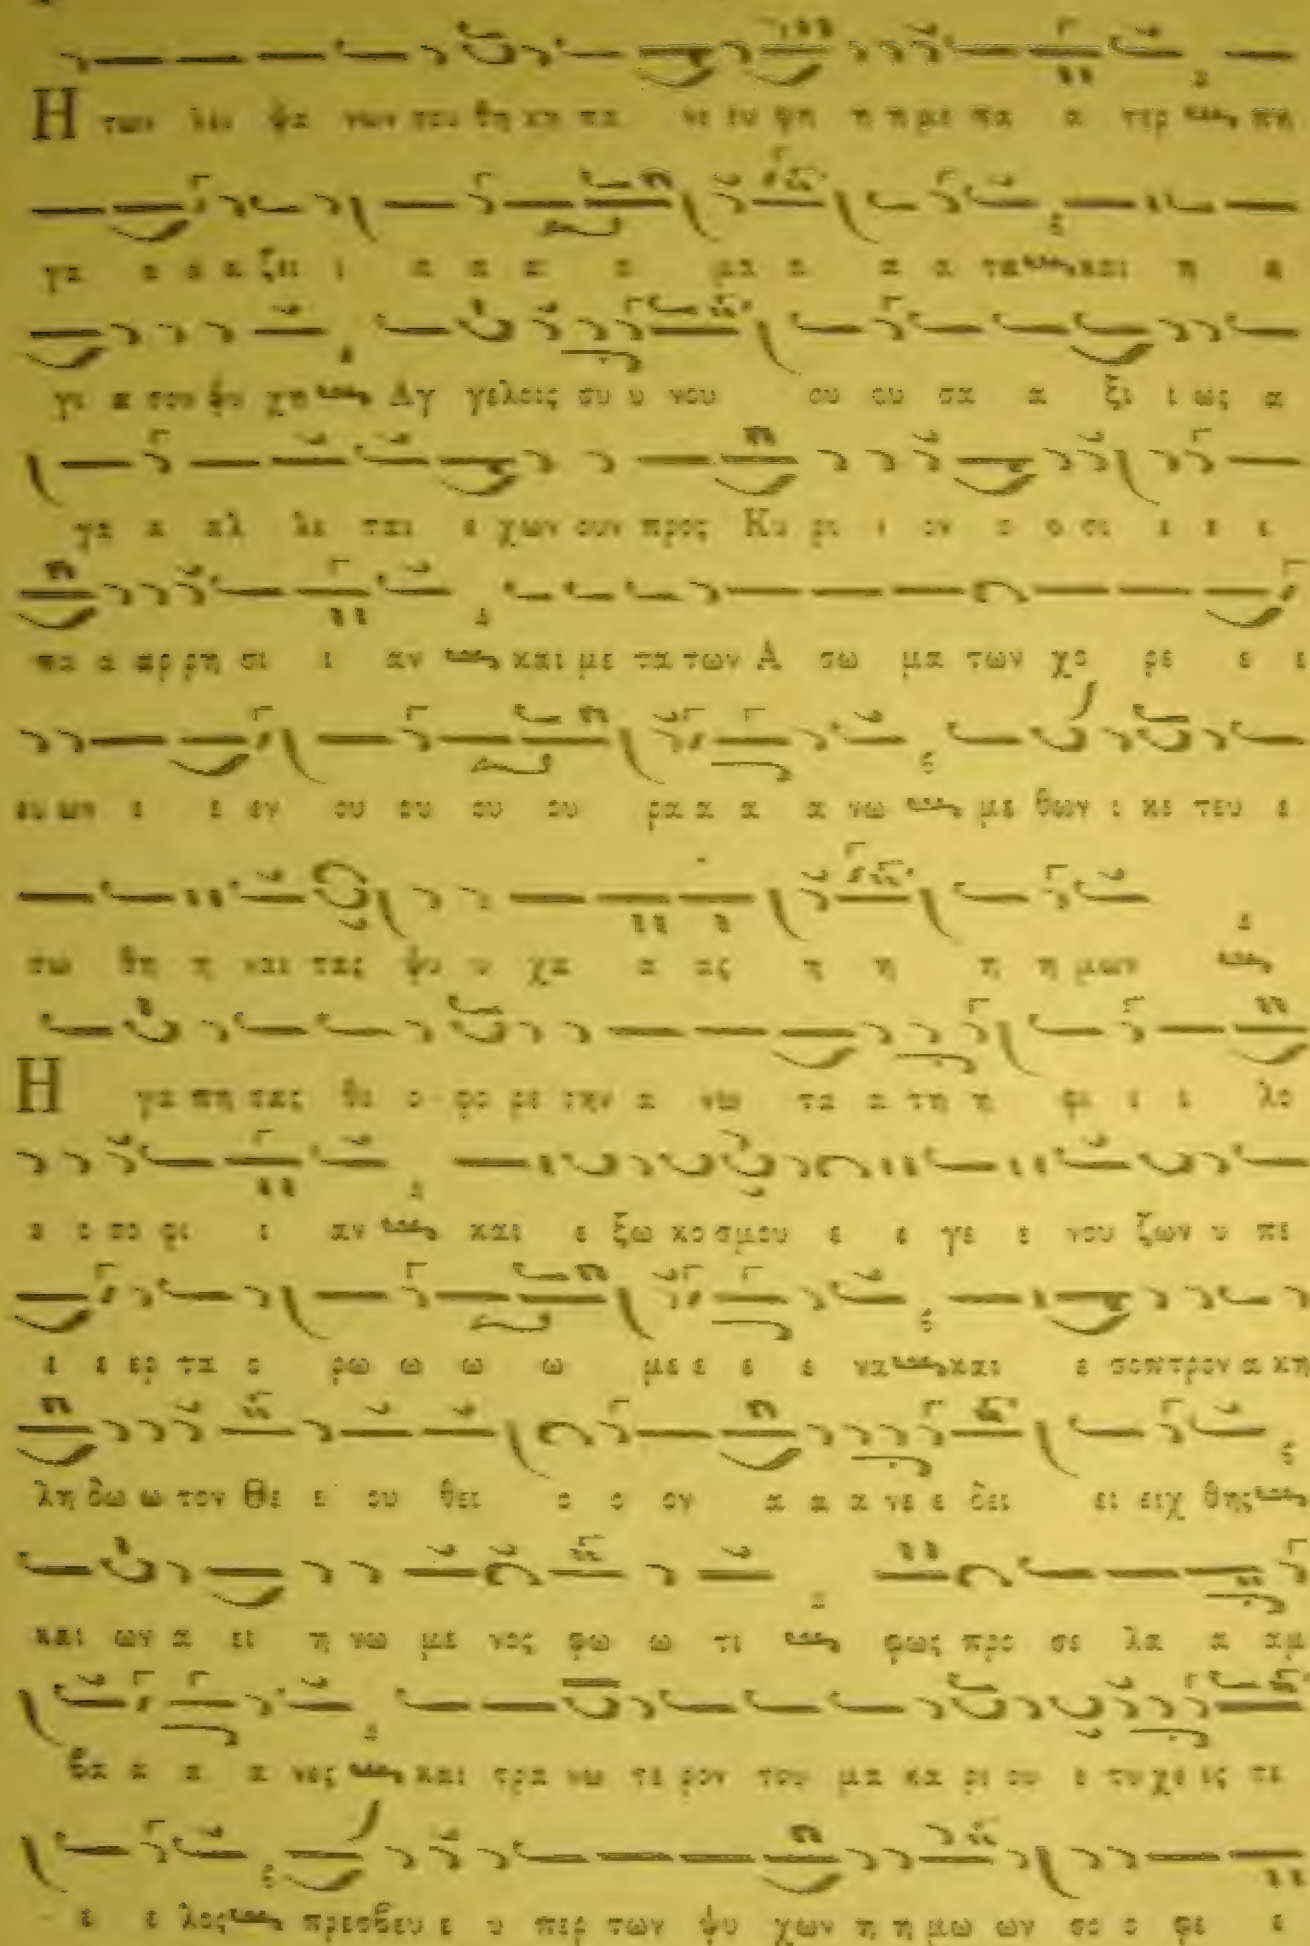 Η των λει ψα νων σου θη κη πα νε ευ φη η η με πα α τερ πη
γα α α α ζει ι α α α α μα α α α τα και η α
γι α σου ψυ χη Αγ γελοις συ υ νου ου ου σα α ξι ι ως α
γα α αλ λε ται ε χων ουν προς Κυ ρι ι ον ο ο σι ι ε ε
πα α αρ ρη σι ι αν και με τα των Α σω μα των χο ρε ε ε
ευ ων ε ε εν ου ου ου ου ρα α α α νω με θων ι κε τευ ε
σω θη η ναι τας ψυ υ χα α ας η η η η μων
Η γα πη σας θε ο φο ρε την α νω τα α τη η φι ι ι λο
ο ο σο φι ι αν και ε ξω κο σμου ε ε γε ε νου ζων υ πε
ε ε ερ τα ο ρω ω ω ω με ε ε ε να και ε σοπτρον α κη
λη δω ω τον Θε ε ου θει ο ο ον α α α νε ε δει ει ειχ θης
και ων α ει η νω με νος φω ω τι φως προ σε λα α αμ
βα α α α νες και τρα νω τε ρον του μα κα ρι ου ε τυ χε ες τε
ε ε λος πρεσβευ ε υ περ των ψυ χων η η μω ων σο ο φε ε